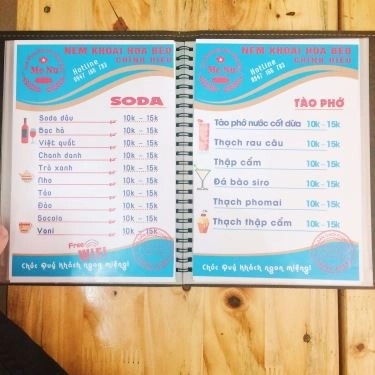 Me Nu
NEM KHOAI HOA BÉO
CHÍNH HIỆU
Hotline
SODA
Soda dâu 10k - 15k
Bạc hà 10k - 15k
Việt quất 10k - 15k
Chanh danh 10k - 15k
Trà xanh 10k - 15k
Nho 10k - 15k
Táo 10k - 15k
Đào 10k - 15k
Socola 10k - 15k
Vani 10k - 15k
Free WiFi
Chúc Quý khách ngon miệng!
Me Nu
NEM KHOAI HOA BÉO
CHÍNH HIỆU
Hotline
TÀO PHỚ
Tào phớ nước cốt dừa 10k - 15k
Thạch rau câu 10k - 15k
Thập cẩm 10k - 15k
Đá bào siro 10k - 15k
Thạch phomai 10k - 15k
Thạch thập cẩm 10k - 15k
Chúc Quý khách ngon miệng!